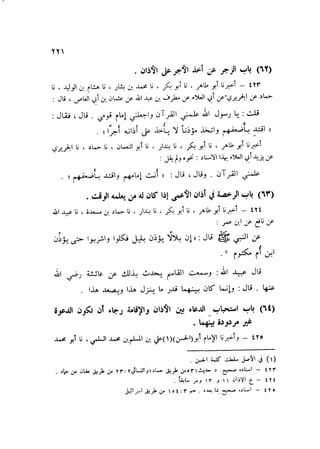 ٢٢١
(٦٢) باب الزجر عن أخذ الأجر على الأذان .
٤٢٣ – أخبرنا أبو طاهر ، نا أبو بكر ، نا محمد بن بشار ، نا هشام بن الوليد ، نا
حماد عن الجريري عن أبي العلاء عن مطرف بن عبد الله عن عثمان بن أبي العاص ، قال :
قلت : يا رسول الله علمني القرآن واجعلني إمام قومي . قال ، فقال :
« اقتد بأضعفهم واتخذ مؤذناً لا يأخذ على أذانه أجراً » .
أخبرنا أبو طاهر ، نا أبو بكر ، نا بندار ، نا أبو النعمان ، نا حماد ، نا الجريري
عن أبي العلاء بهذا الإسناد : نحوه
علمني القرآن . وقال ، قال : « أنت إمامهم واقتد بأضعفهم » .
(٦٣) باب الرخصة في أذان الأعمى إذا كان له من يعلمه الوقت .
٤٢٤ – أخبرنا أبو طاهر ، نا أبو بكر ، نا بندار ، نا حماد بن مسعدة ، نا عبيد الله
عن نافع عن ابن عمر :
عن النبي ﷺ قال : « إن بلالاً يؤذن بليل فكلوا واشربوا حتى يؤذن
ابن أم مكتوم » .
قال عبيد الله : وسمعت القاسم يحدث بذلك عن عائشة رضي الله
عنها . قال : وإنما كان بينهما قدر ما ينزل هذا ويصعد هذا .
(٦٤) باب استحباب الدعاء بين الأذان والإقامة رجاء أن تكون الدعوة
غير مردودة بينهما .
٤٢٥ – وأخبرنا الإمام أبو (الحسن)(١)
(١) في الأصل سقطت كلمة الحسن .
٤٢٣ – إسناده صحيح . د حديث ٥٣١ من طريق حماد والنسائي ٢ : ٢٣ من طريق عفان عن حماد .
٤٢٤ – خ الأذان ١١ و ١٣ ومن
٤٢٥ – إسناده